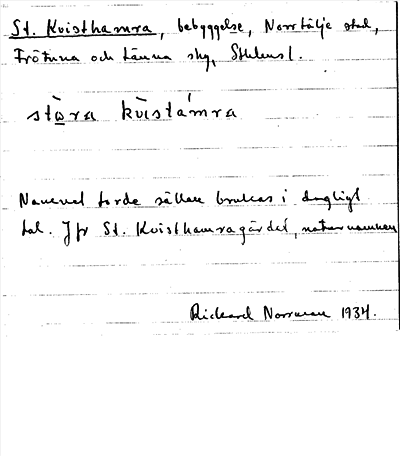 St. Kvisthamra, bebyggelse, Norrtälje stad,
Frötuna och Länna skg, Sthlms l.
stòra kvìstámra
Namnet torde sällan brukas i dagligt
tal. Jfr St. Kvisthamragärdet, naturnamnen
Rickard Norrman 1934.